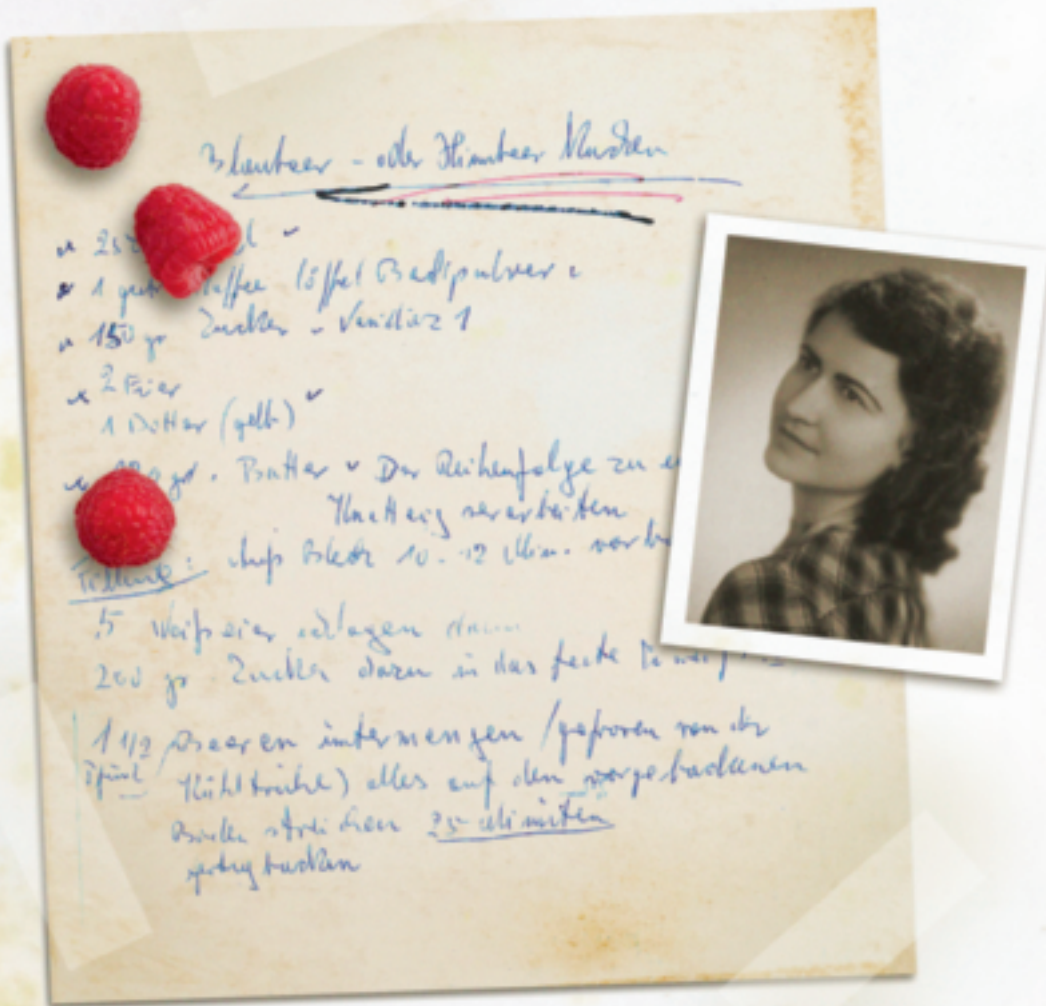 Blaubeer - oder Himbeer Kuchen
1 Kaffee löffel Backpulver
150 gr Zucker - 1
2 Eier
1 Dotter (gelb)
gr. Butter Der Reihenfolge zu
Knetteig verarbeiten
Füllung: Aufs Blech 10-12 Min.
5 Weißeier schlagen
200 gr Zucker dazu in das feste
1 1/2 Beeren untermengen (gefroren von der
Kühltruhe) alles auf den vorgebackenen
Boden streichen 25 Minuten
fertig backen